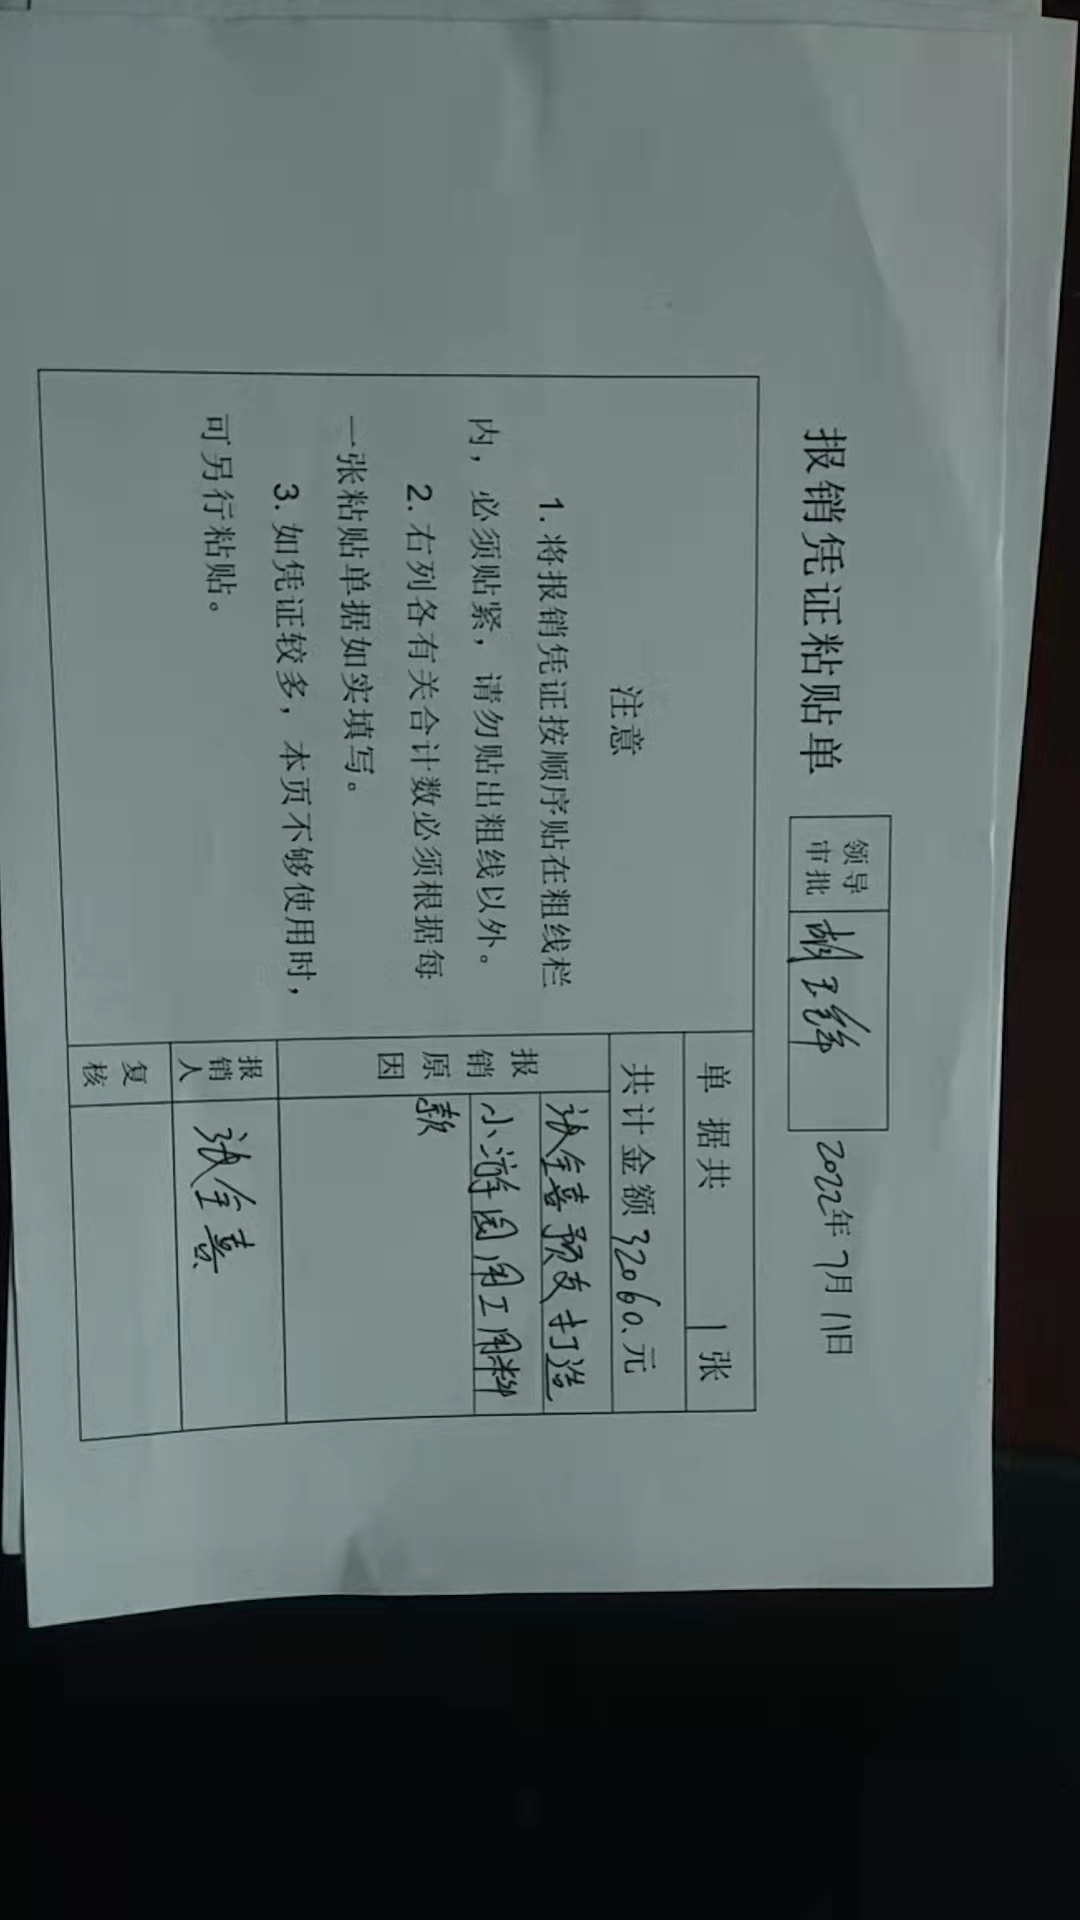 报销凭证粘贴单
领导
审批
2022年7月11日
注意
1.将报销凭证按顺序贴在粗线栏
内，必须贴紧，请勿贴出粗线以外。
2.右列各有关合计数必须根据每
一张粘贴单据如实填写。
3.如凭证较多，本页不够使用时，
可另行粘贴。
单据共 1张
共计金额32060.元
报销原因
张全喜预支打造
小游园用工用料
款
报销人
张全喜
复核